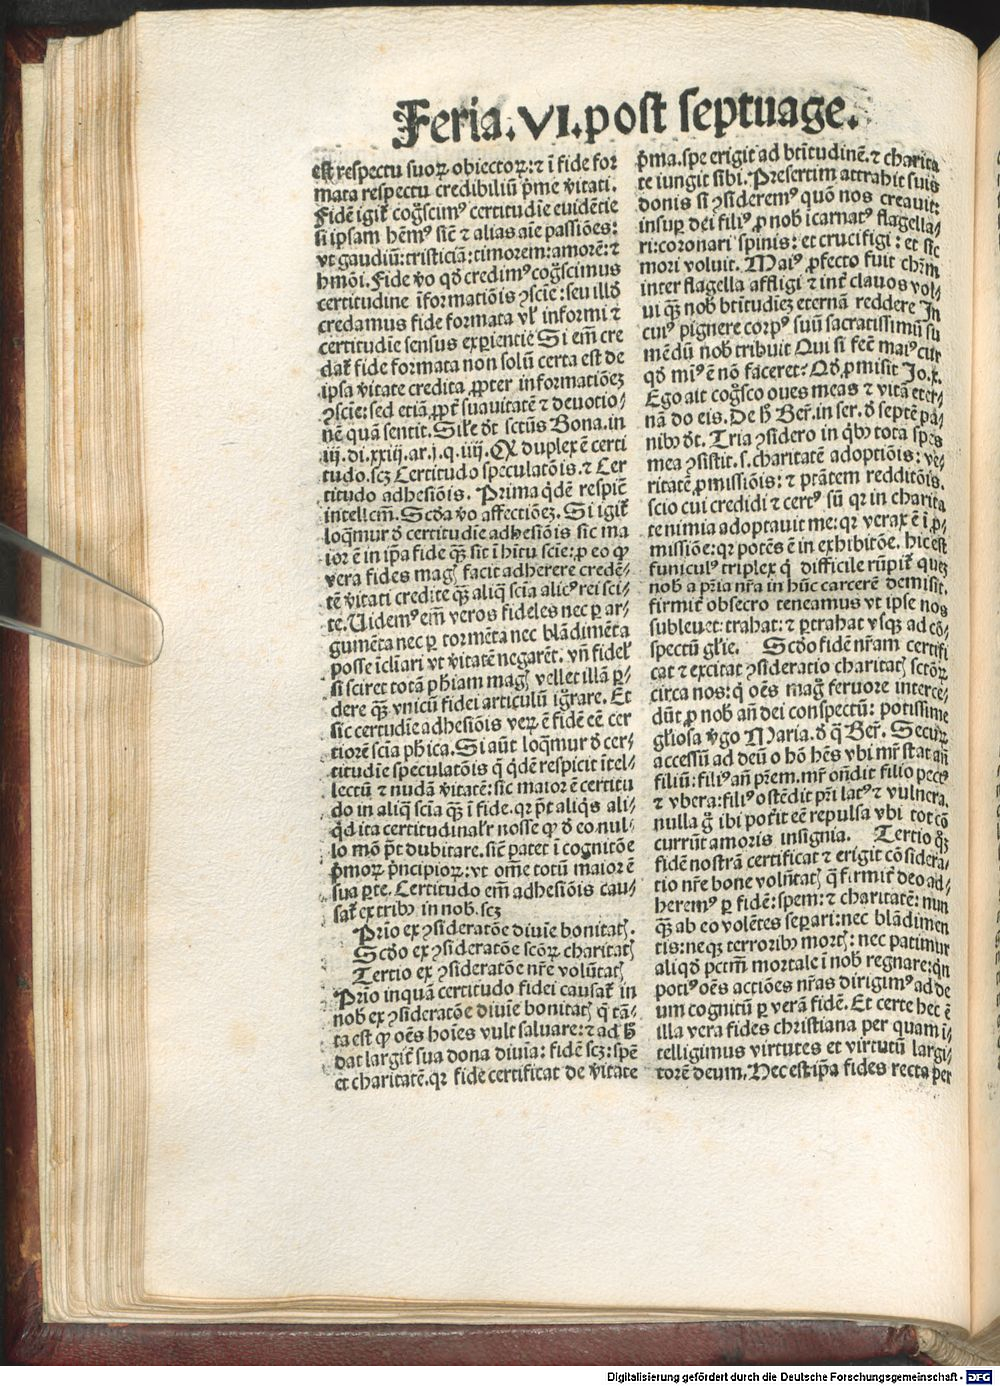 Feria.VI.post septuage.
est respectu suoꝝ obiectoꝝ:⁊ ī fide for
mata respectu credibiliū p̄me v̄itati.
Fidē igit̄ coḡscimꝰ certitudīe euidētie
si ipsam hēmꝰ sic̄ ⁊ alias aīe passiōes:
vt gaudiū:tristiciā:timorem:amorē:⁊
hmōi.Fide v̄o qd̄ credimꝰ coḡscimus
certitudine īformatiōis ꝯscīe:seu illd̄
credamus fide formata vl̓ informi ⁊
certitudīe sensus experientie Si em̄ cre
dat̄ fide formata non solū certa est de
ipsa v̄itate credita ꝓpter informatiōeꝫ
ꝯscīe:sed etiā ꝓpt̄ suauitatē ⁊ deuotio⸗
nē quā sentit.Sil̓e dt̄ sctūs Bona.in
iij.di.xxiij.ar.j.q.iiij.Ꝙ duplex ē certi
tudo.scꝫ Certitudo speculatōis.⁊ Cer
titudo adhesiōis. Prima qd̄e respic̄
intellcm̄.Scd̄a v̄o affectiōeꝫ.Si igit̄
loqm̄ur d̄ certitudīe adhesiōis sic ma
ior ē in ip̄a fide qꝫ sit ī hītu scīe:ꝓ eo ꝙ
vera fides magꝭ facit adherere credē⸗
tē v̄itati credite qꝫ aliq̄ scīa alicꝰ rei sci⸗
te.Uidemꝰ em̄ veros fideles nec ꝑ ar⸗
gumēta nec ꝑ tormēta nec blādimēta
posse īcliari vt v̄itatē negarēt.vn̄ fidel̓
si sciret totā phiam magꝭ vellet illā ꝑ⸗
dere qꝫ vnicū fidei articulū iḡrare. Et
sic certudīe adhesiōis veꝝ ē fidē eē cer
tiorē scīa phica.Si aūt loqm̄ur d̄ cer⸗
titudīe speculatōis q̄ qd̄e respicit ītel⸗
lectū ⁊ nudā v̄itatē:sic maior ē certitu
do in aliq̄ scīa qꝫ ī fide.qꝛ pt̄ aliqs ali⸗
qd̄ ita certitudinal̓r nosse ꝙ d̄ eo nul⸗
lo mō pt̄ dubitare.sic̄ patet ī cognitōe
p̄moꝝ p̄ncipioꝝ:vt om̄e totū maior ē
sua ꝑte. Certitudo em̄ adhesiōis cau⸗
sat̄ ex tribꝰ in nob̄.scꝫ
Prīo ex ꝯsideratōe diuīe bonitatꝭ.
Scd̄o ex ꝯsideratōe scōꝝ charitatꝭ
Tertio ex ꝯsideratōe nr̄e volūtatꝭ
Prīo inquā certitudo fidei causat̄ in
nob̄ ex ꝯsideratōe diuīe bonitatꝭ q̄ tā⸗
ta est ꝙ oēs hoīes vult saluare:⁊ ad h̄
dat largit̄ sua dona diuīa: fidē scꝫ:spē
et charitatē.qꝛ fide certificat de v̄itate
p̄ma.spe erigit ad btītudinē.⁊ charita
te iungit sibi. Presertim attrahit suis
donis si ꝯsideremꝰ quō nos creauit:
insuꝑ dei filiꝰ ꝓ nob̄ īcarnatꝰ flagella⸗
ri:coronari spinis:et crucifigi:et sic
mori voluit. Maiꝰ ꝓfecto fuit chrm̄
inter flagella affligi ⁊ int̄ clauos vol⸗
ui qꝫ nob̄ btītudieꝫ eternā reddere In
cuiꝰ pignere corpꝰ suū sacratissimū su
mēdū nob̄ tribuit Qui si fec̄ maiꝰ cur
qd̄ miꝰ ē nō faceret? Qd̄ ꝓmisit Jo.x.
Ego ait coḡsco oues meas ⁊ vitā eter⸗
nā do eis. De h̄ Ber̄.in ser.d̄ septē pa⸗
nibꝰ dt̄. Tria ꝯsidero in qbꝰ tota spes
mea ꝯsistit.s.charitatē adoptiōis:ve⸗
ritatē ꝓmissiōis:⁊ ptātem redditōis.
scio cui credidi ⁊ certꝰ sū qꝛ in charita
te nimia adoptauit me:qꝛ verax ē ī ꝓ⸗
missiōe:qꝛ potēs ē in exhibitōe. hic est
funiculꝰ triplex q̄ difficile rūpit̄ queꝫ
nob̄ a pr̄ia nr̄a in hūc carcerē demisit.
firmit̄ obsecro teneamus vt ipse nos
subleuet:trahat:⁊ ꝑtrahat vsqꝫ ad cō⸗
spectū gl̓ie. Scd̄o fidē nr̄am certifi
cat ⁊ excitat ꝯsideratio charitatꝭ sctōꝝ
circa nos:q̄ oēs magͦ feruore interce⸗
dūt ꝓ nob̄ an̄ dei conspectū: potissime
gl̓iosa v̄go Maria.d̄ q̄ Ber̄. Secuꝝ
accessū ad deū o hō hēs vbi mr̄ stat an̄
filiū:filiꝰ an̄ prēm.mr̄ on̄dit filio pectꝰ
⁊ vbera:filiꝰ ostēdit pr̄i latꝰ ⁊ vulnera.
nulla g̊ ibi potīt eē repulsa vbi tot cō
currūt amoris insignia. Tertio q̊ꝫ
fidē nostrā certificat ⁊ erigit cōsidera⸗
tio nr̄e bone volūtatꝭ q̄ firmit̄ deo ad⸗
heremꝰ ꝑ fidē:spem:⁊ charitatē: nun
qꝫ ab eo volētes seꝑari:nec blādimen
tis:neqꝫ terroribꝰ mortꝭ: nec patimur
aliqd̄ pctm̄ mortale ī nob̄ regnare:qn̄
potiꝰ oēs actiōes nr̄as dirigimꝰ ad de
um cognitū ꝑ verā fidē. Et certe hec ē
illa vera fides christiana per quam ī⸗
telligimus virtutes et virtutū largi⸗
torē deum. Hec est ip̄a fides recta per
Digitalisierung gefördert durch die Deutsche Forschungsgemeinschaft - DFG